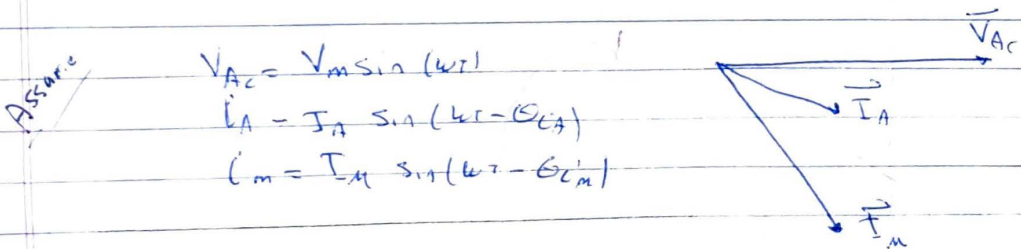 Assume
V_Ac = V_m sin (ωt)
i_A = I_A sin (ωt - θ_iA)
i_m = I_M sin (ωt - θ_im)
V_Ac
I_A
I_M